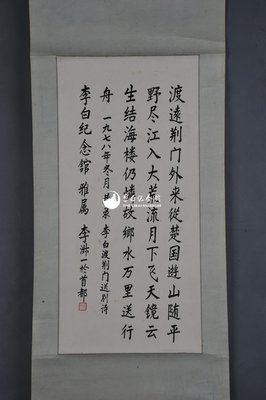 渡遠荆门外来從楚国遊山随平
野尽江入大荒流月下飞天镜云
生结海楼仍憐故鄉水万里送行
舟 一九七八年冬月 李白渡荆门送别诗
李白纪念舘 雅属 李淑一於首都